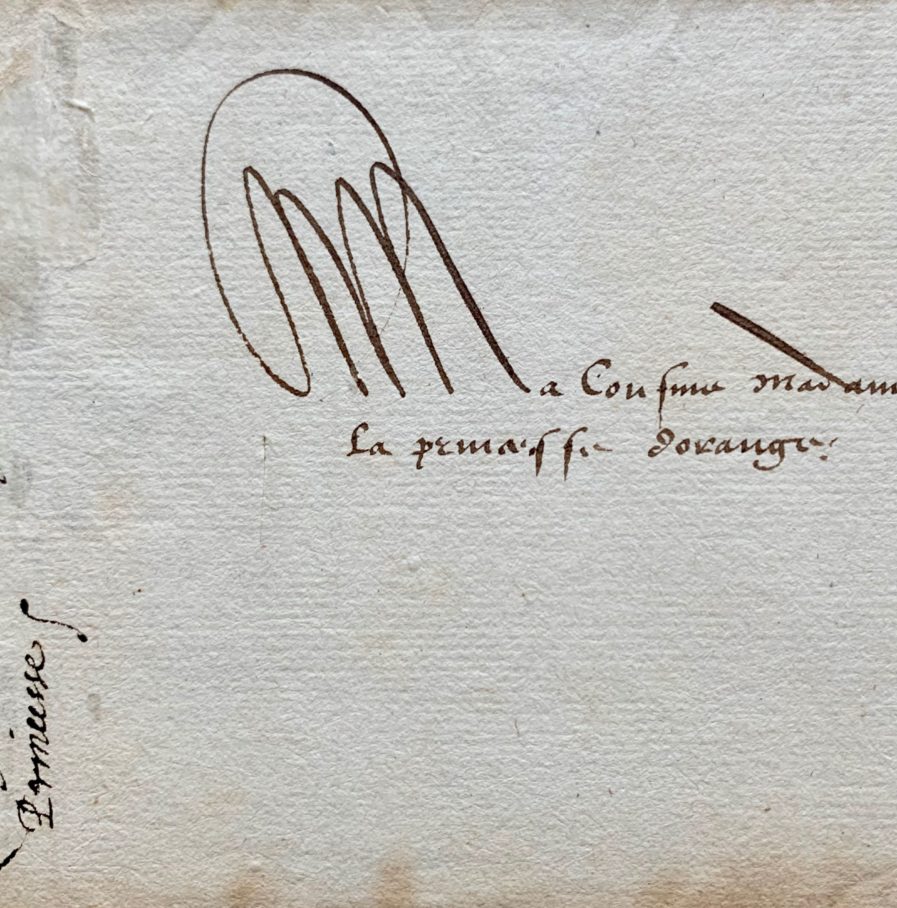 Ma Cousine madam
La princesse dorange
Princesse